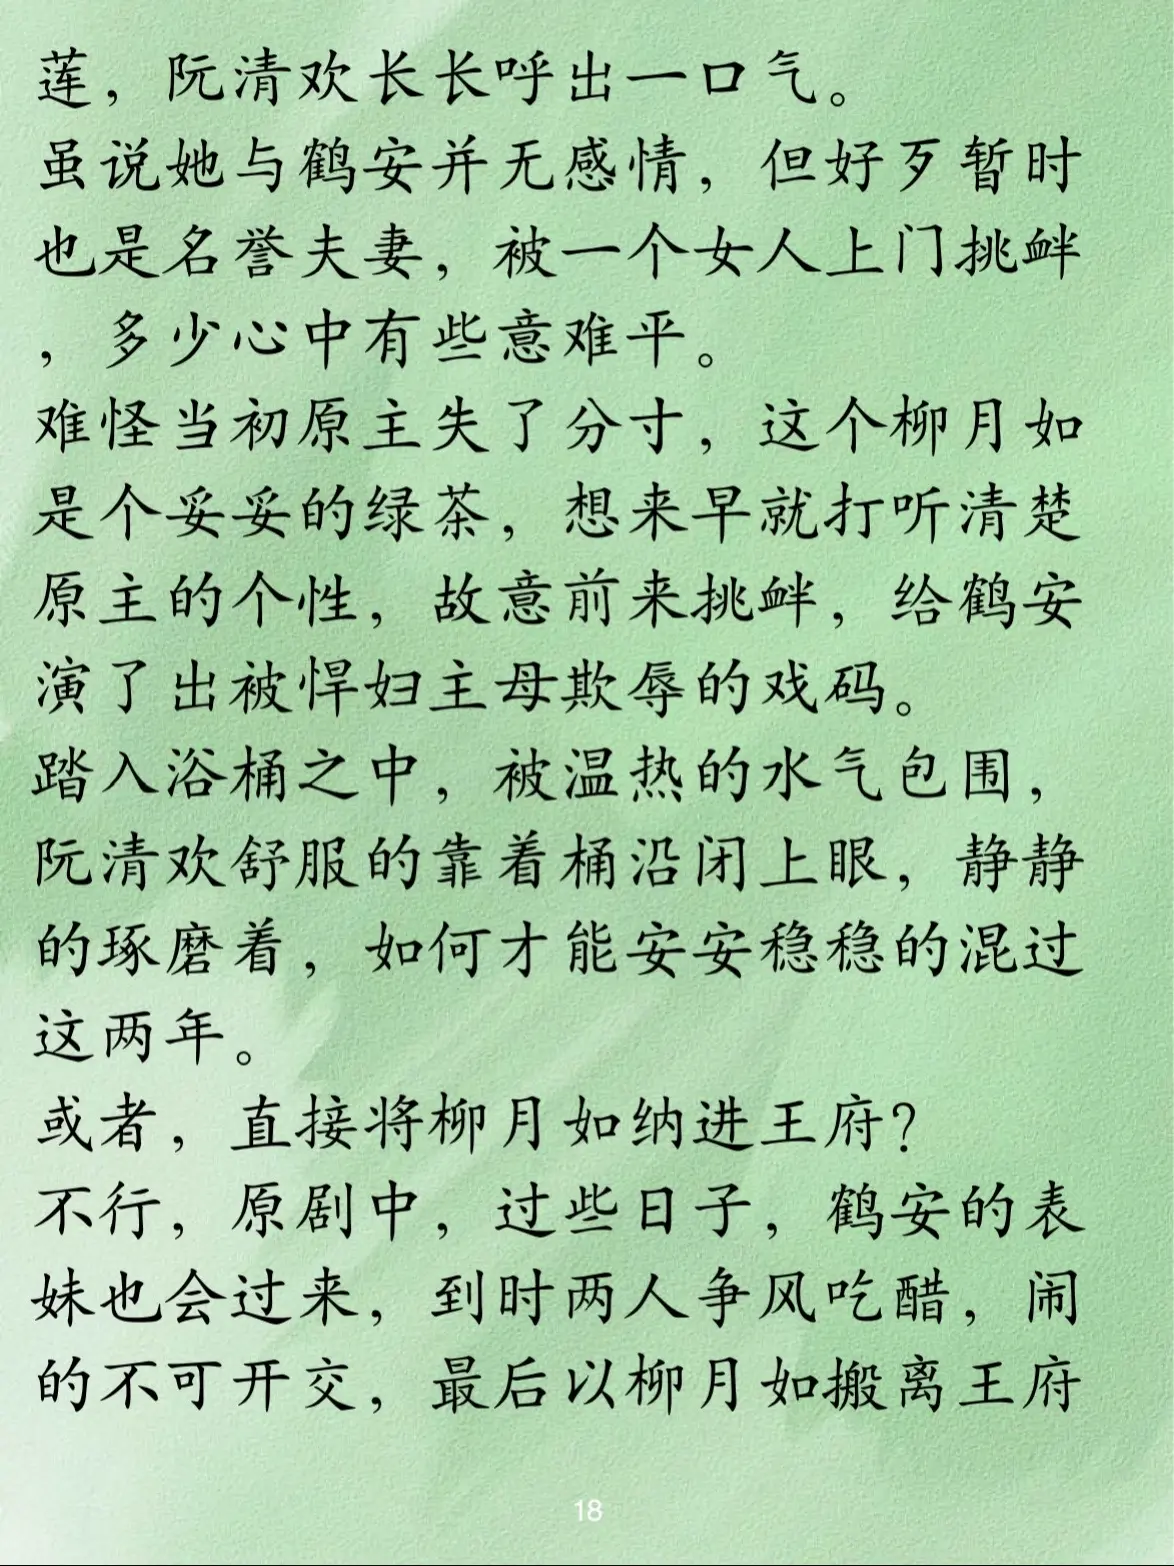 莲，阮清欢长长呼出一口气。
虽说她与鹤安并无感情，但好歹暂时
也是名誉夫妻，被一个女人上门挑衅
，多少心中有些意难平。
难怪当初原主失了分寸，这个柳月如
是个妥妥的绿茶，想来早就打听清楚
原主的个性，故意前来挑衅，给鹤安
演了出被悍妇主母欺辱的戏码。
踏入浴桶之中，被温热的水气包围，
阮清欢舒服的靠着桶沿闭上眼，静静
的琢磨着，如何才能安安稳稳的混过
这两年。
或者，直接将柳月如纳进王府？
不行，原剧中，过些日子，鹤安的表
妹也会过来，到时两人争风吃醋，闹
的不可开交，最后以柳月如搬离王府
18